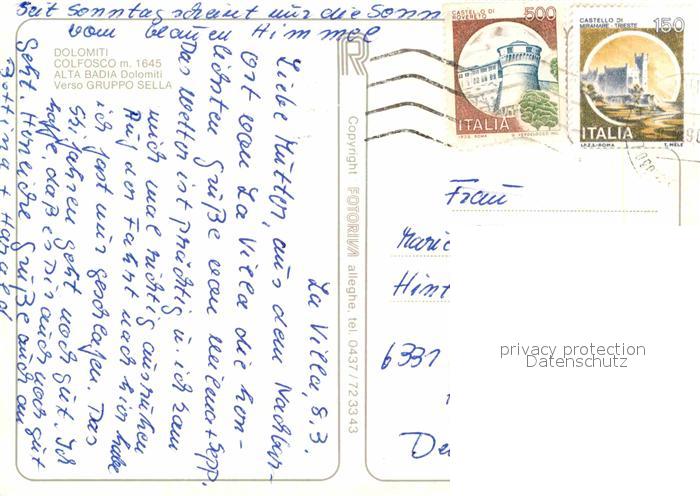 Seit Sonntag scheint nur die Sonne
vom blauen Himmel
DOLOMITI
COLFOSCO m. 1645
ALTA BADIA Dolomiti
Verso GRUPPO SELLA
La Villa, 8.3.
Liebe Mutter, aus dem Nachbar-
ort von La Villa die herz-
lichsten Grüße von
Das Wetter ist prächtig u. ich kann
mich mal richtig ausruhen
Auf der Fahrt nach hier habe
ich fast nur geschlafen. Das
Ski fahren geht noch gut. Ich
hoffe, daß es Dir auch noch gut
geht. Herzliche Grüße auch an
Bettina + Harald
Copyright FOTORIVA alleghe, tel. 0437/723343
CASTELLO DI
ROVERETO
500
ITALIA
I.P.Z.S. ROMA
CASTELLO DI
MIRAMARE - TRIESTE
150
ITALIA
I.P.Z.S.-ROMA
T. MELE
Frau
Marie
Hint
6331
De
privacy protection
Datenschutz